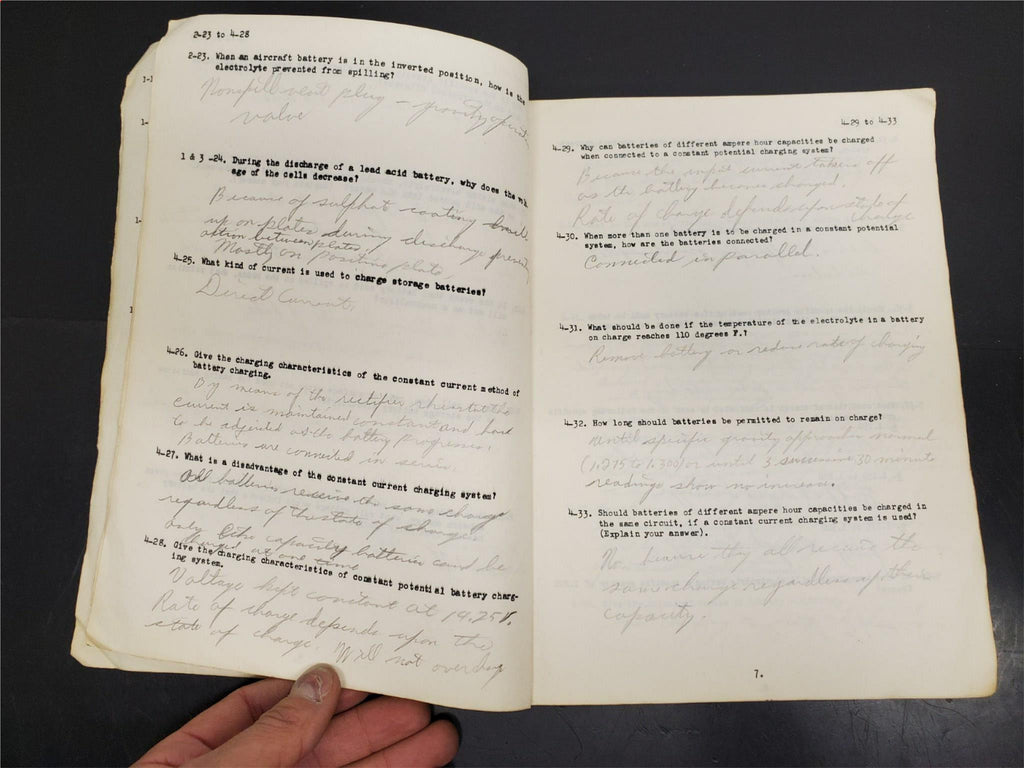 2-23 to 4-28
2-23. When an aircraft battery is in the inverted position, how is the
electrolyte prevented from spilling?
Nonspill vent plug - gravity operated
valve
1 & 3 -24. During the discharge of a lead acid battery, why does the
age of the cells decrease?
Because of sulphat coating
up on plates during discharge
action between plates.
Mostly on positive plate.
4-25. What kind of current is used to charge storage batteries?
Direct Current.
4-26. Give the charging characteristics of the constant current method of
battery charging.
By means of the rectifier rheostat the
current is maintained constant and had
to be adjusted as the battery progresses.
Batteries are connected in series.
4-27. What is a disadvantage of the constant current charging system?
All batteries receive the same charge
regardless of the state of charge.
only like capacity batteries could be
charged at one time
4-28. Give the charging characteristics of constant potential battery charg-
ing system.
Voltage kept constant at 14.25 V.
Rate of charge depends upon the
state of charge. Will not overcharge
1-1
1-
1-
1
4-29 to 4-33
4-29. Why can batteries of different ampere hour capacities be charged
when connected to a constant potential charging system?
Because the input current tapers off
as the battery becomes charged.
Rate of charge depends upon state of
charge
4-30. When more than one battery is to be charged in a constant potential
system, how are the batteries connected?
Connected in parallel.
4-31. What should be done if the temperature of the electrolyte in a battery
on charge reaches 110 degrees F.?
Remove battery or reduce rate of charging
4-32. How long should batteries be permitted to remain on charge?
Until specific gravity approaches normal
(1.275 to 1.300) or until 3 successive 30 minute
readings show no increase.
4-33. Should batteries of different ampere hour capacities be charged in
the same circuit, if a constant current charging system is used?
(Explain your answer).
No because they all receive the
same charge regardless of their
capacity.
7.